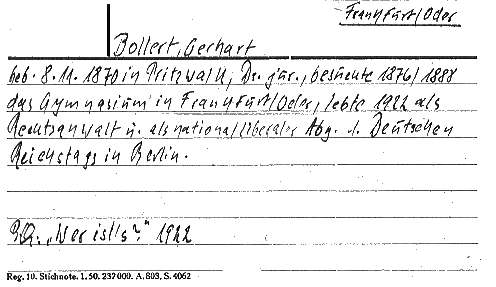 Frankfurt/Oder
Bollert, Gerhart
geb. 8.11.1870 in Pritzwalk, Dr. jur., besuchte 1876/1888
das Gymnasium in Frankfurt/Oder, lebte 1922 als
Rechtsanwalt u. als nationalliberaler Abg. d. Deutschen
Reichstags in Berlin.
BQ. „Wer ists?" 1922
Reg. 10. Stichnote. 1. 50. 237000. A. 803, S. 4062